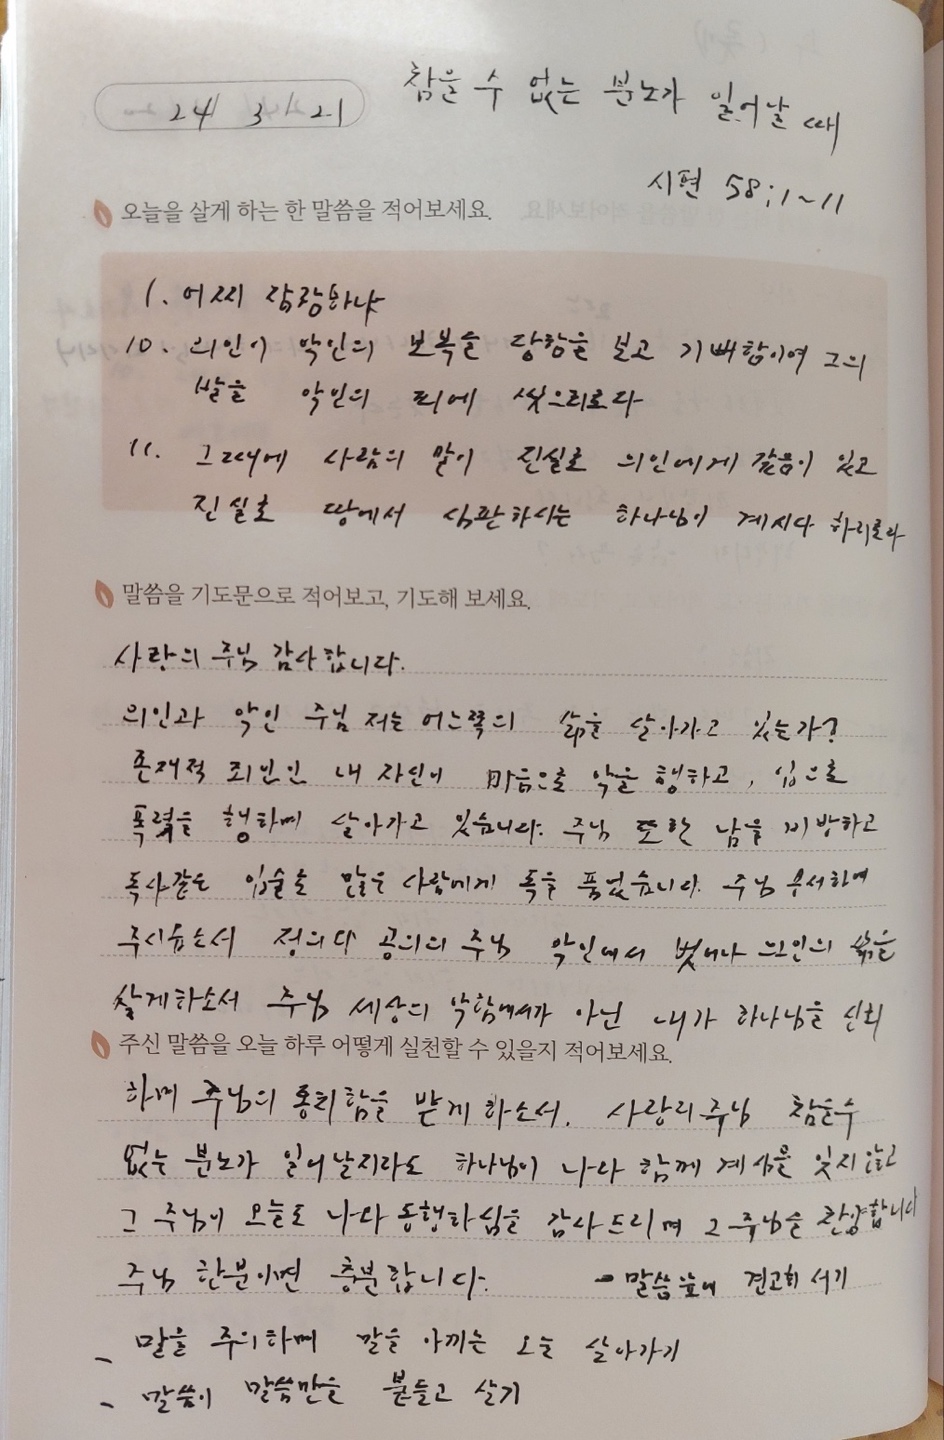 참을 수 없는 분노가 일어날 때
24 3 21
시편 58:1~11
오늘을 살게 하는 한 말씀을 적어보세요.
1. 어찌 잠잠하냐
10. 의인이 악인의 보복을 당함을 보고 기뻐함이여 그의
발을 악인의 피에 씻으리로다
11. 그때에 사람의 말이 진실로 의인에게 갚음이 있고
진실로 땅에서 심판하시는 하나님이 계시다 하리로다
말씀을 기도문으로 적어보고, 기도해 보세요.
사랑의 주님 감사합니다.
의인과 악인 주님 저는 어느쪽의 삶을 살아가고 있는가?
존재적 죄인인 내 자신이 마음으로 악을 행하고, 입으로
폭력을 행하며 살아가고 있습니다. 주님 또한 남을 비방하고
독사같은 입술로 많은 사람에게 독을 품었습니다. 주님 용서하여
주시옵소서 정의다 공의의 주님 악인에서 벗어나 의인의 삶을
살게하소서 주님 세상의 악함에서가 아닌 내가 하나님을 신뢰
주신 말씀을 오늘 하루 어떻게 실천할 수 있을지 적어보세요.
하며 주님의 통치함을 받게 하소서. 사랑의 주님 참을수
없는 분노가 일어날지라도 하나님이 나와 함께 계심을 잊지 않고
그 주님이 오늘도 나와 동행하심을 감사드리며 그 주님을 찬양합니다
주님 한분이면 충분합니다. - 말씀앞에 견고히 서기
- 말을 주의하며 말을 아끼는 오늘 살아가기
- 말씀이 말씀만을 붙들고 살기